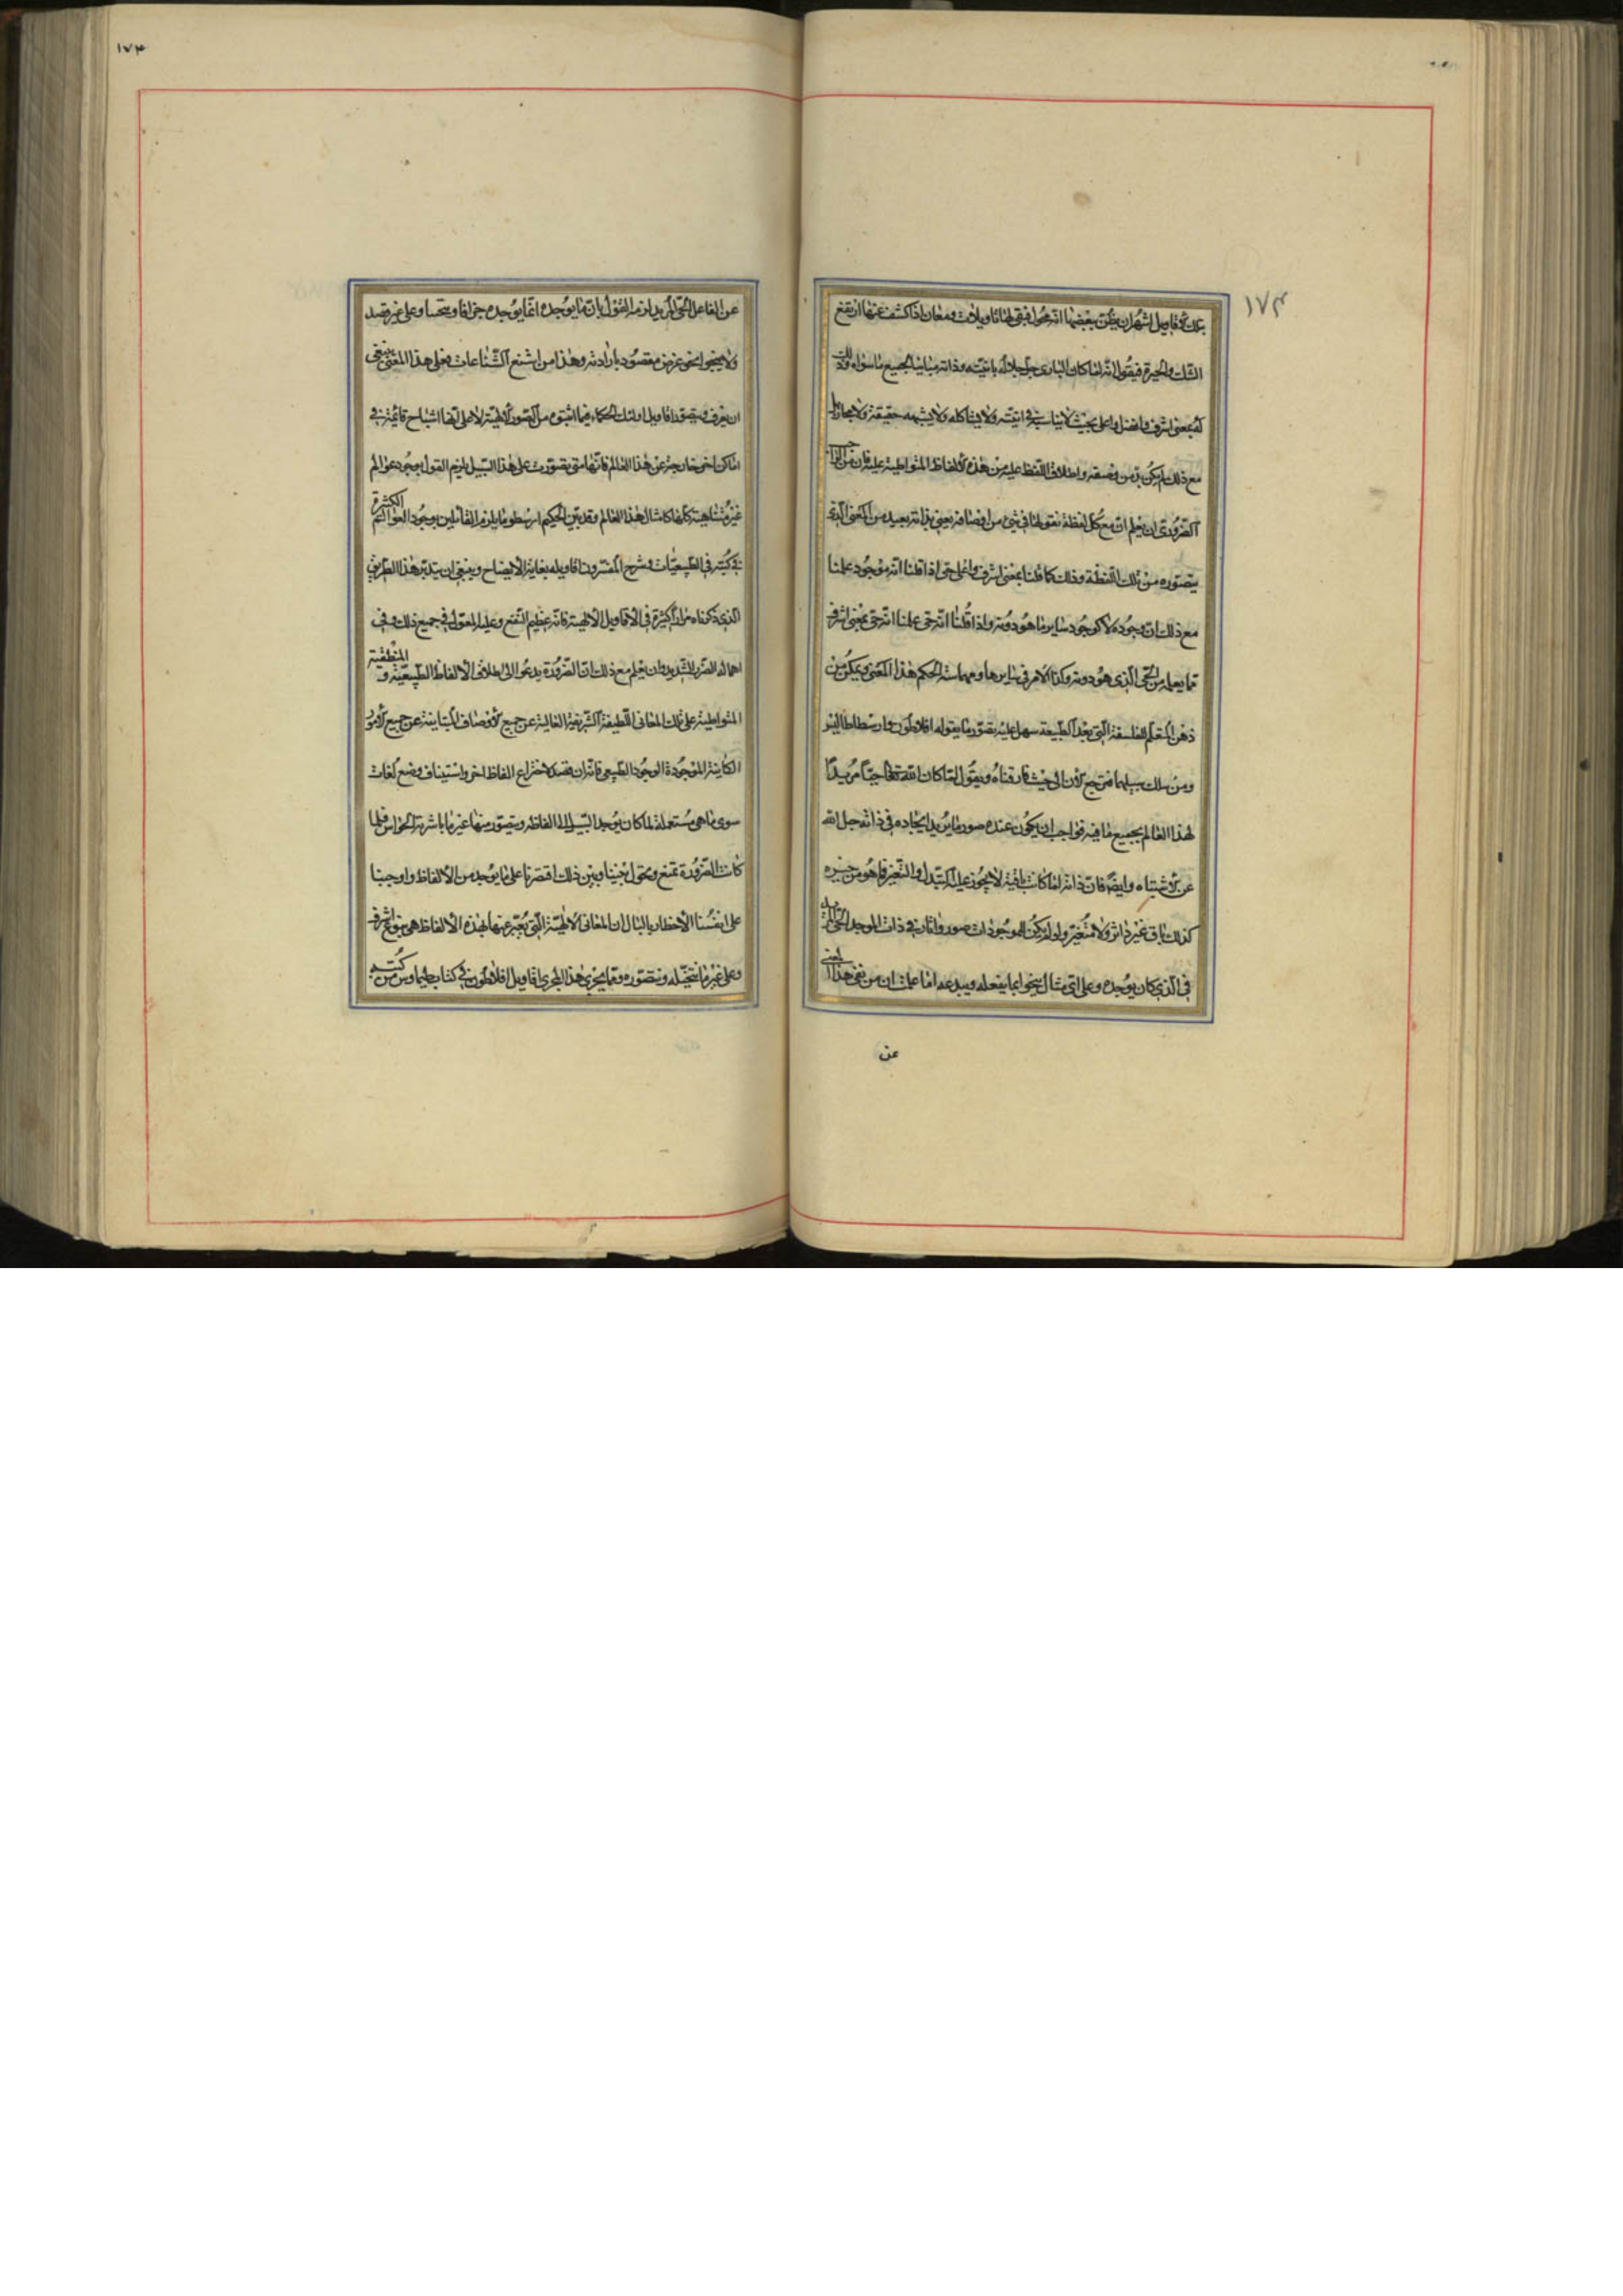 ١٧٣
عن الاقاويل اشهر ان يظن ببعضها انه منحول فبقى لها تاويلات ومعان اذا كشف عنها ارتفع
الشك والحيرة فنقول انه لما كان البارى جل جلاله بانيته وذاته مباينا لجميع ما سواه وذلك
له بمعنى اشرف وافضل واعلى بحيث لا يناسبه فى انيته ولا يشاكله ولا يشبهه حقيقة ولا مجازا
مع ذلك لم يكن بد من وصفه واطلاق اللفظ عليه من هذه الالفاظ المتواطية عليه فان من الواجب
الضرورى ان يعلم ان مع كل لفظة نقولها فى شئ من اوصافه بعنى بذاته بعيد من المعنى الذى
يتصوره من تلك اللفظة وذلك كما قلنا بمعنى اشرف واعلى حتى اذا قلنا انه موجود علمنا
مع ذلك ان وجوده لا كوجود ساير ما هو دونه واذا قلنا انه حى علمنا انه حى بمعنى اشرف
مما يعلمه من الحى الذى هو دونه وكذا الامر فى سايرها ومهما استحكم هذا المعنى وتمكن من
ذهن المتعلم للفلسفة التى بعد الطبيعة سهل عليه تصور ما يقوله افلاطون وارسطاطاليس
ومن سلك سبيلهما فنرجع الان الى حيث فارقناه ونقول لما كان الله تعالى حيا مريدا
لهذا العالم بجميع ما فيه فواجب ان يكون عنده صور ما يريد ايجاده فى ذاته جل الله
عن الاشتباه وايضا فان ذاته لما كانت باقية لا يجوز عليه التبدل والتغير فما هو من حيزه
كذلك باق غير داثر ولا متغير ولو لم يكن للموجودات صور واثار فى ذات الموجد الحى المريد
فى الذى كان يوجده وعلى اى مثال ينحو بما يفعله ويبدعه اما علمت ان من نفى هذا المعنى
عن
١٧٤
عن الفاعل الحى المريد لزمه القول بان ما يوجده انما يوجده جزافا وبتحسا وعلى غير قصد
ولا ينحو نحو غرض مقصود بارادته وهذا من اشنع الشناعات فعلى هذا المعنى ينبغى
ان يعرف ويتصور اقاويل اولئك الحكماء فيما اثبتوه من الصور الالهية لا على انها اشباح قائمة فى
اماكن اخر خارجة عن هذا العالم فانها متى تصورت على هذا السبيل يلزم القول بوجود عوالم
غير متناهية كلها كامثال هذا العالم وقد بين الحكيم ارسطو ما يلزم القائلين بوجود العوالم الكثيرة
فى كتبه فى الطبيعيات وشرح المفسرون اقاويله بغاية الايضاح وينبغى ان يتدبر هذا الطريق
الذى ذكرناه مرارا كثيرة فى الاقاويل الالهية فانه عظيم النفع وعليه المعول فى جميع ذلك وفى
اهماله الضرر الشديد وان يعلم مع ذلك ان الضرورة يدعو الى اطلاق الالفاظ الطبيعية و المنطقية
المتواطية على تلك المعانى اللطيفة الشريفة العالية عن جميع الاوصاف المتباينة عن جميع الامور
الكاينة الموجودة الوجود الطبيعى فانه ان قصد لاختراع الفاظ اخر واستيناف وضع لغات
سوى ما هى مستعملة لما كان يوجد السبيل الى الفاظه ويتصور منها غير ما باشرته الحواس فلما
كانت الضرورة تمنع وتحول بيننا وبين ذلك اقتصرنا على ما يوجد من الالفاظ واوجبنا
على انفسنا الاخطار بالبال ان المعانى الالهية التى يعبر عنها بهذه الالفاظ هى بنوع اشرف
وعلى غير ما نتخيله ونتصوره ومما يجرى هذا المجرى اقاويل افلاطون فى كتاب طيماوس من كتبه